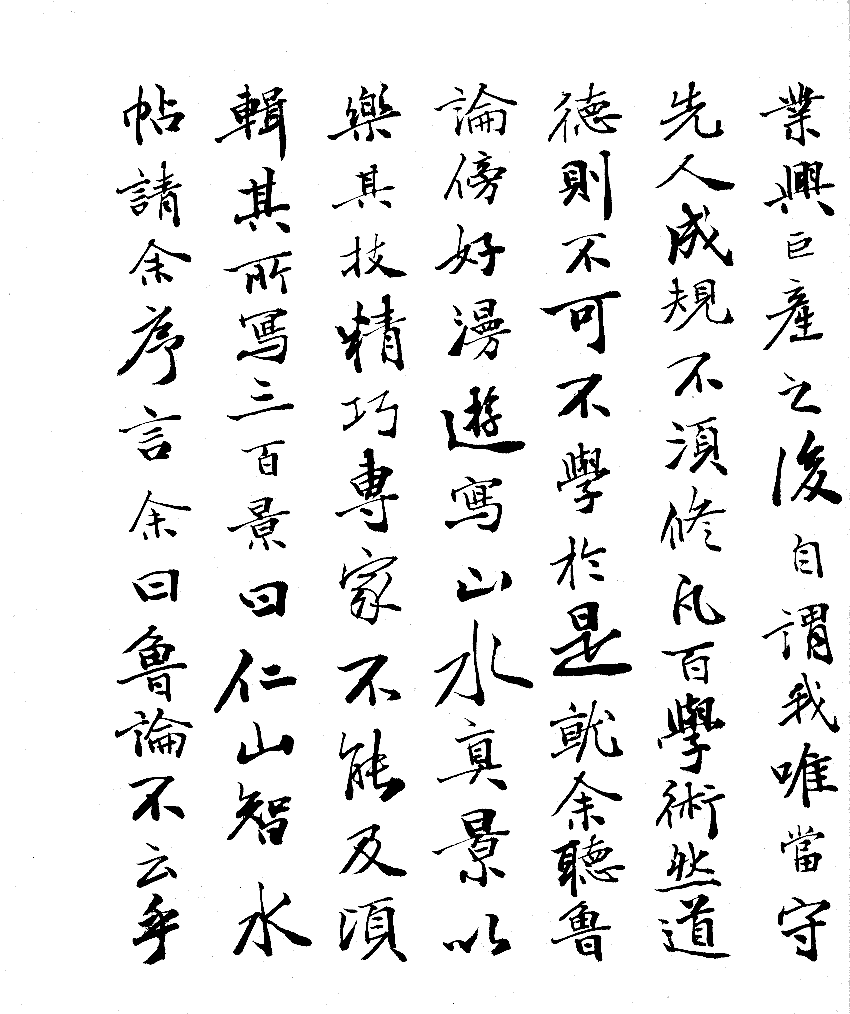 業興巨産之後自謂我唯當守
先人成規不須修凡百學術然道
徳則不可不學於是就余聽魯
論傍好漫遊寫山水真景以
樂其技精巧専家不能及頃
輯其所寫三百景曰仁山智水
帖請余序言余曰魯論不云乎